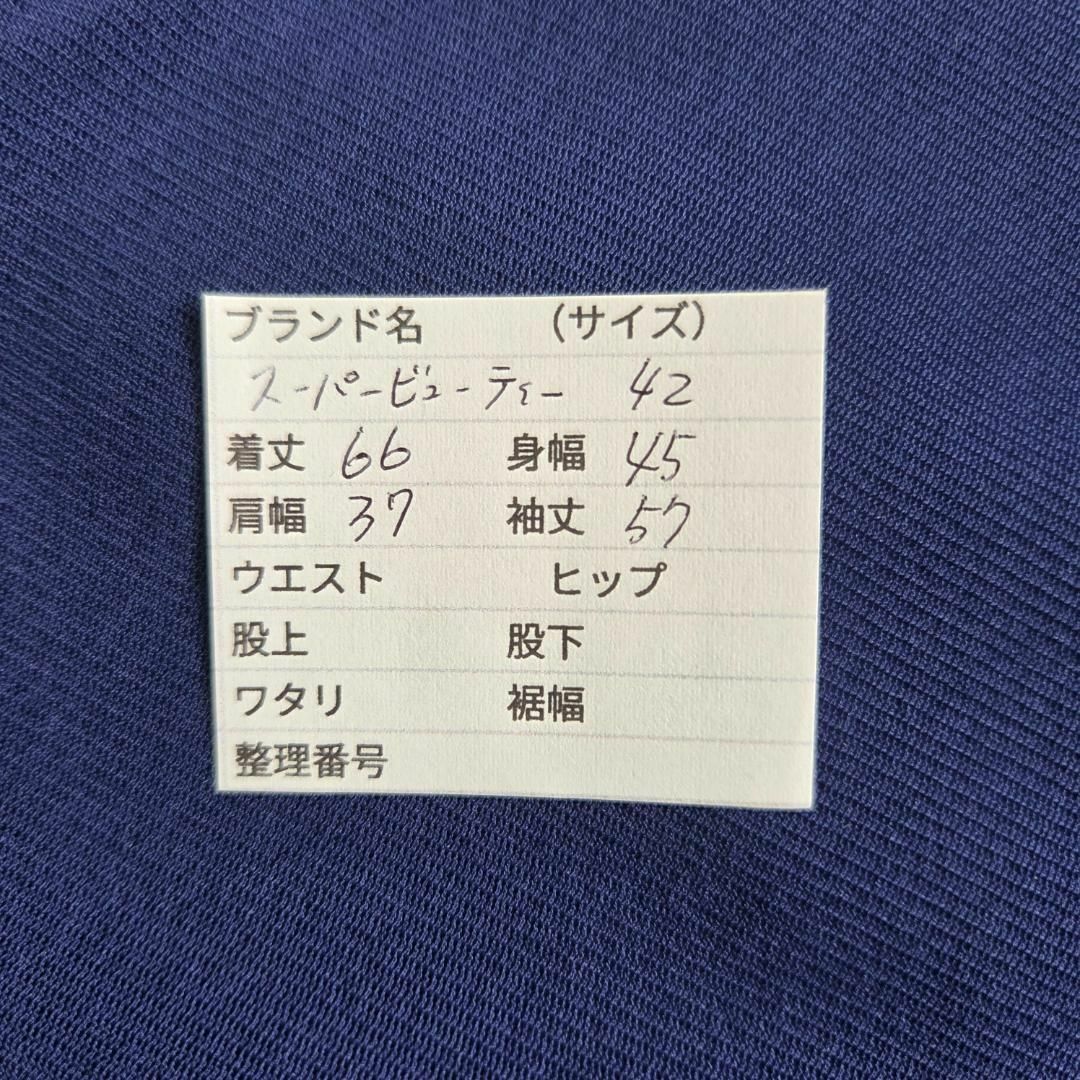 ブランド名　（サイズ）
スーパービューティー　42
着丈 66　身幅 45
肩幅 37　袖丈 57
ウエスト　ヒップ
股上　股下
ワタリ　裾幅
整理番号